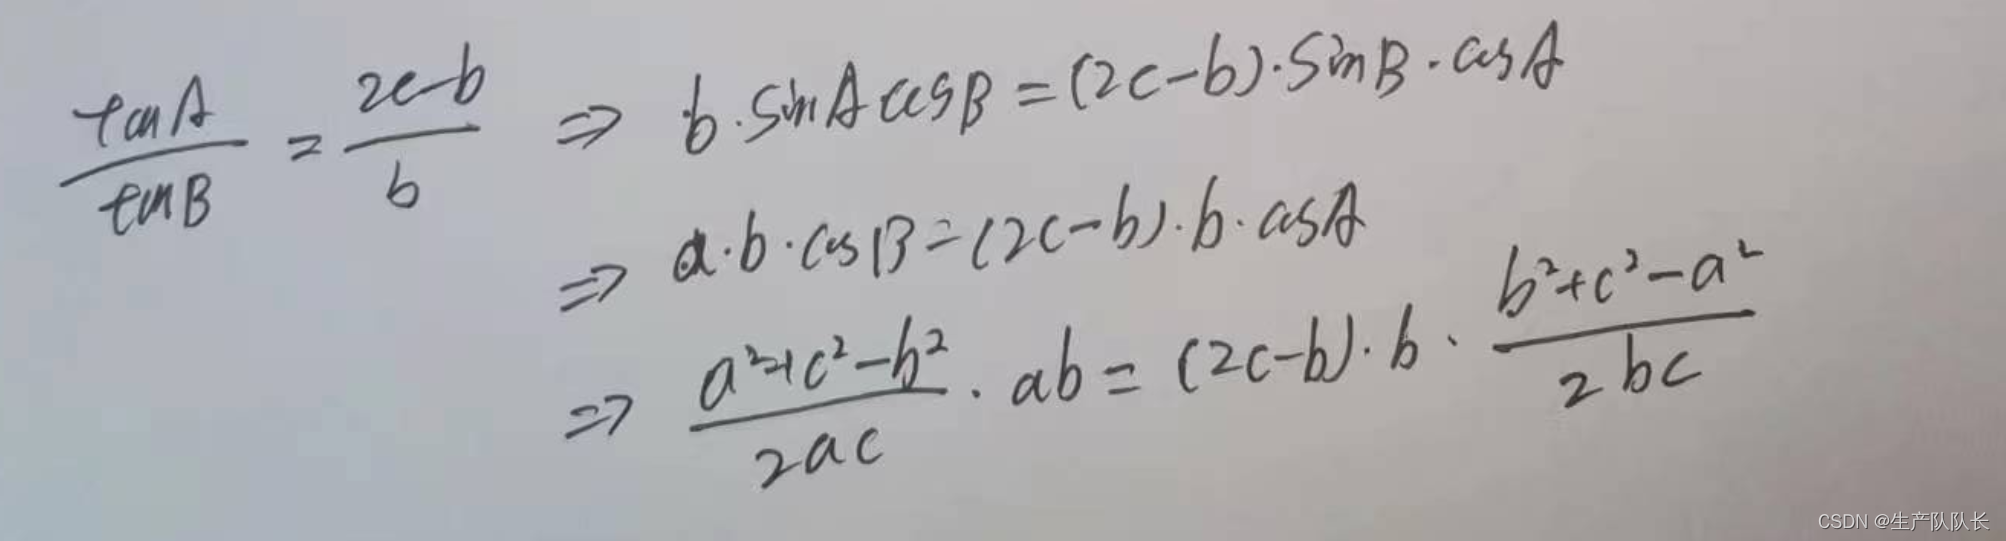 tanA/tanB = (2c-b)/b ⇒ b·sinAcosB=(2c-b)·sinB·cosA
⇒ a·b·cosB=(2c-b)·b·cosA
⇒ (a²+c²-b²)/(2ac)·ab=(2c-b)·b·(b²+c²-a²)/(2bc)
CSDN @生产队队长